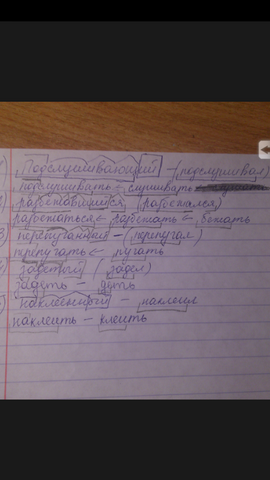 Подслушивающий – (подслушивал)
подслушивать ← слушивать ←
разбежавшийся, (разбежался)
разбежаться ← разбежать ← бежать
3) перепугавший – (перепугал)
перепугать ← пугать
задетый (задел)
задеть – деть
наклеенный – наклеил
наклеить – клеить